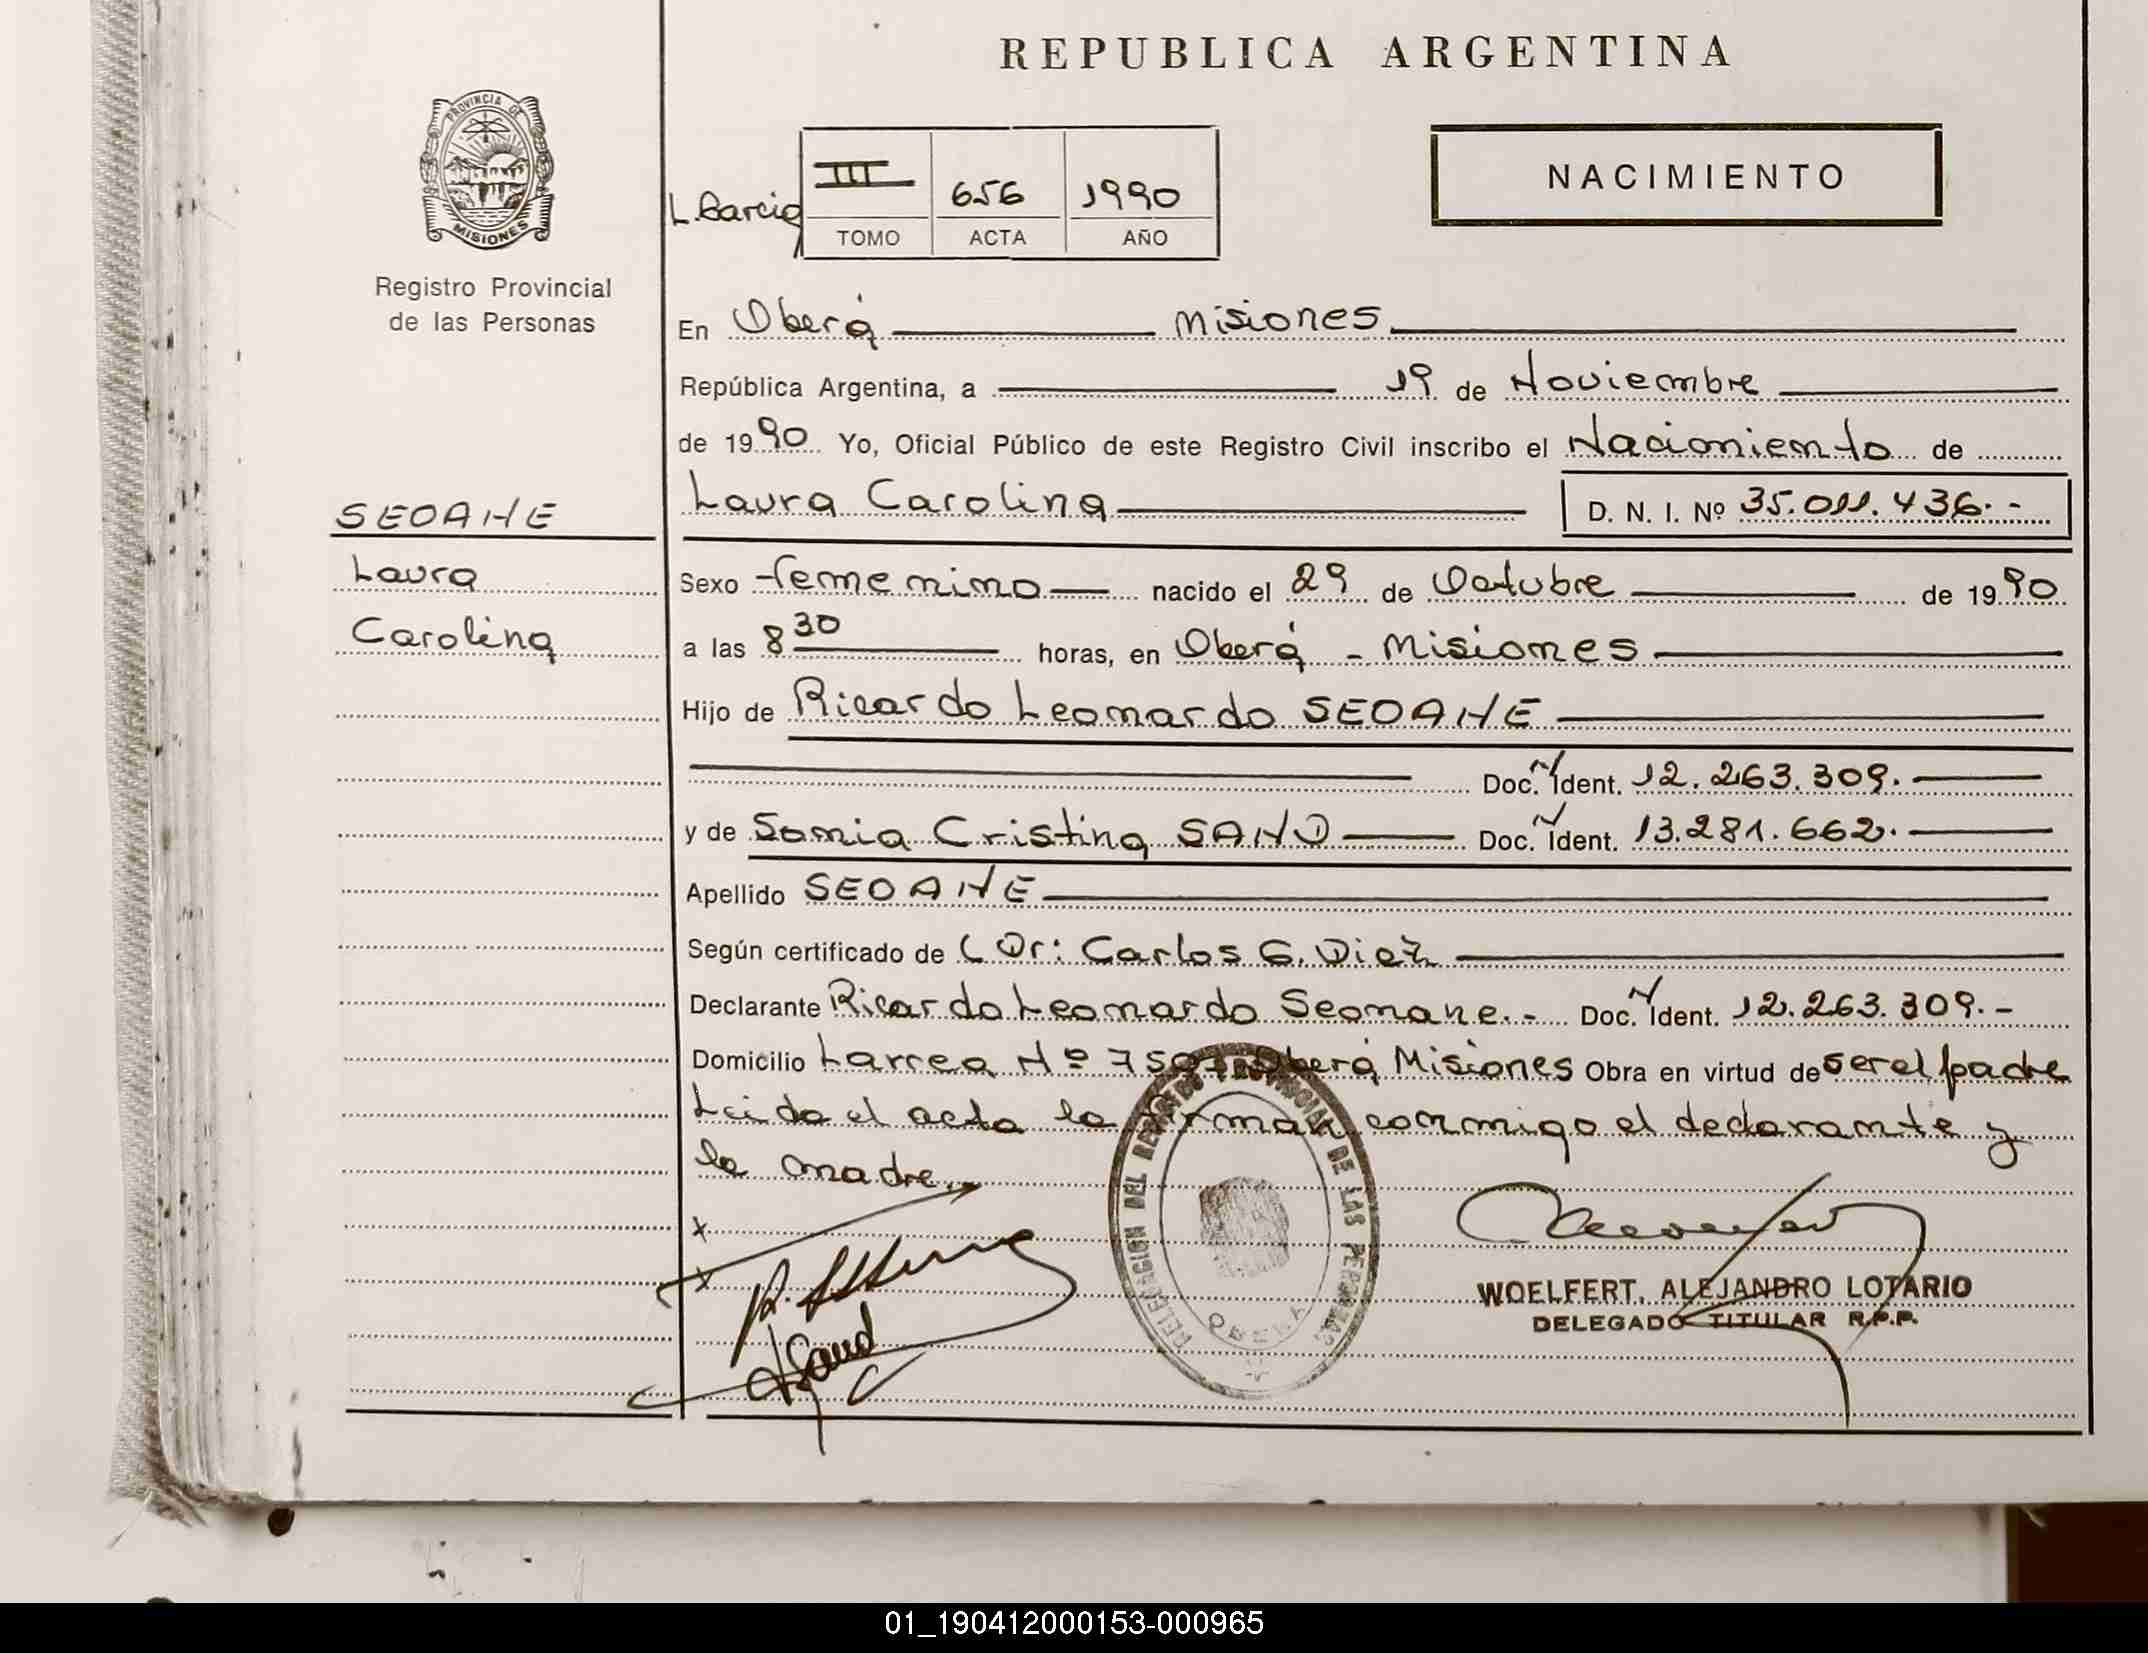 REPUBLICA ARGENTINA
PROVINCIA DE
MISIONES
Registro Provincial
de las Personas
L. Garcia
III 656 1990
TOMO ACTA AÑO
NACIMIENTO
En Oberá Misiones
República Argentina, a 19 de Noviembre
de 1990 Yo, Oficial Público de este Registro Civil inscribo el Nacimiento de
Laura Carolina D. N. I. Nº 35.011.436.-
SEOANE
Laura
Carolina
Sexo femenino nacido el 29 de Octubre de 1990
a las 8 30 horas, en Oberá - Misiones
Hijo de Ricardo Leonardo SEOANE
Doc. N Ident. 12.263.309.
y de Sonia Cristina SAND Doc. N Ident. 13.281.662.
Apellido SEOANE
Según certificado de Dr: Carlos G. Diez
Declarante Ricardo Leonardo Seonane.- Doc. N Ident. 12.263.309.-
Domicilio Larrea Nº Oberá Misiones Obra en virtud de ser el padre
Leida el acta la firman conmigo el declarante y
la madre.
X
X
Sand
DELEGACION DEL REGISTRO PROVINCIAL DE LAS PERSONAS
OBERA
WOELFERT, ALEJANDRO LOTARIO
DELEGADO TITULAR R.P.P.
01_190412000153-000965